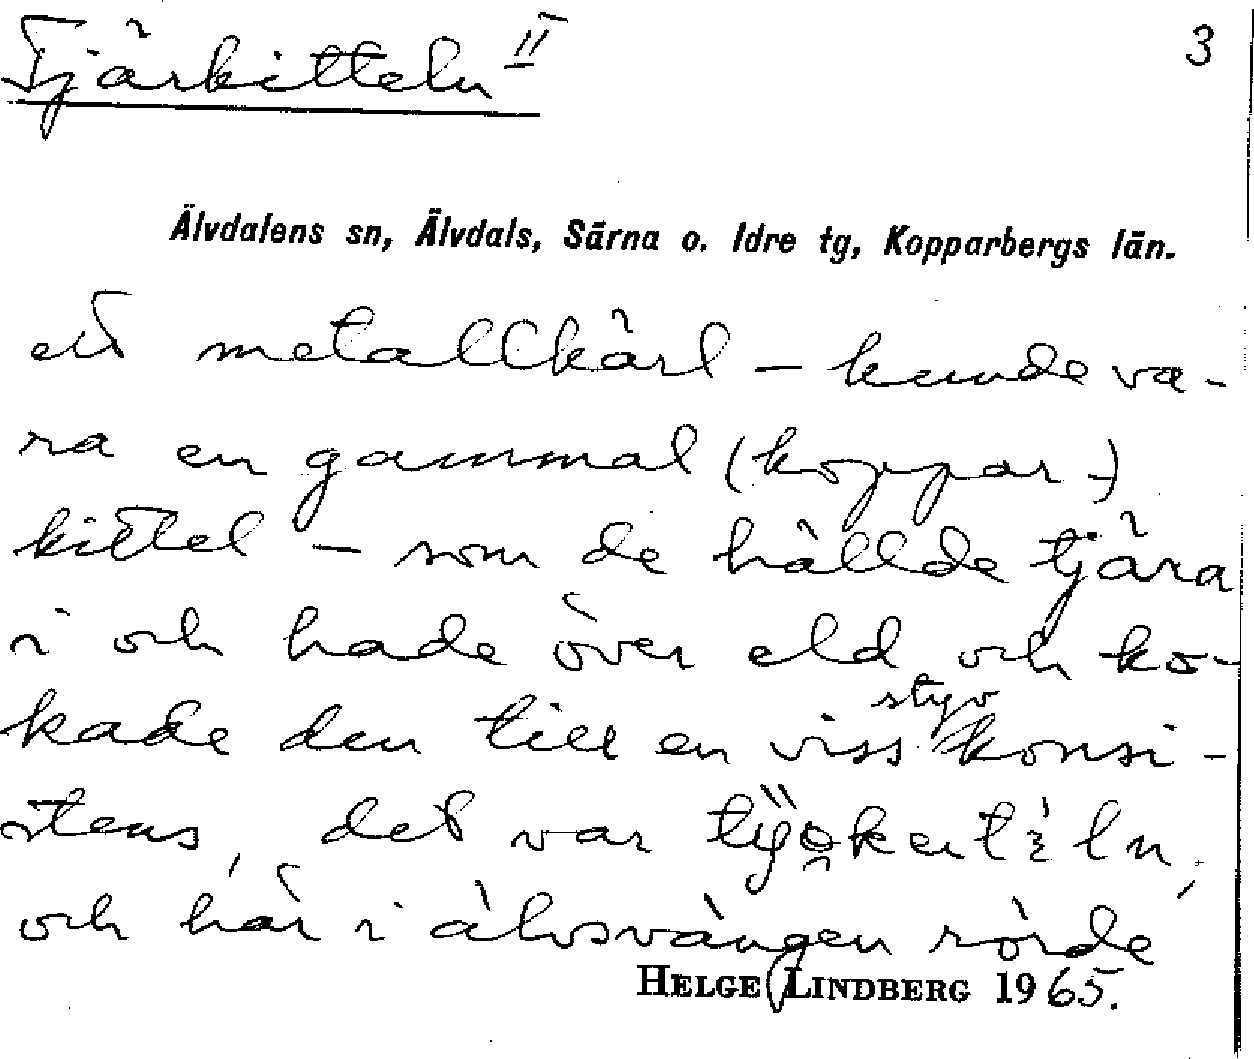 Tjärkitteln II 3
Älvdalens sn, Älvdals, Särna o. Idre tg, Kopparbergs län.
ett metallkärl – kunde va-
ra en gammal (koppar-)
kittel – som de hällde tjära
i och hade över eld och ko-
kade den till en viss styv konsi-
stens, det var
och här i älvsvängen rörde
HELGE LINDBERG 1965.